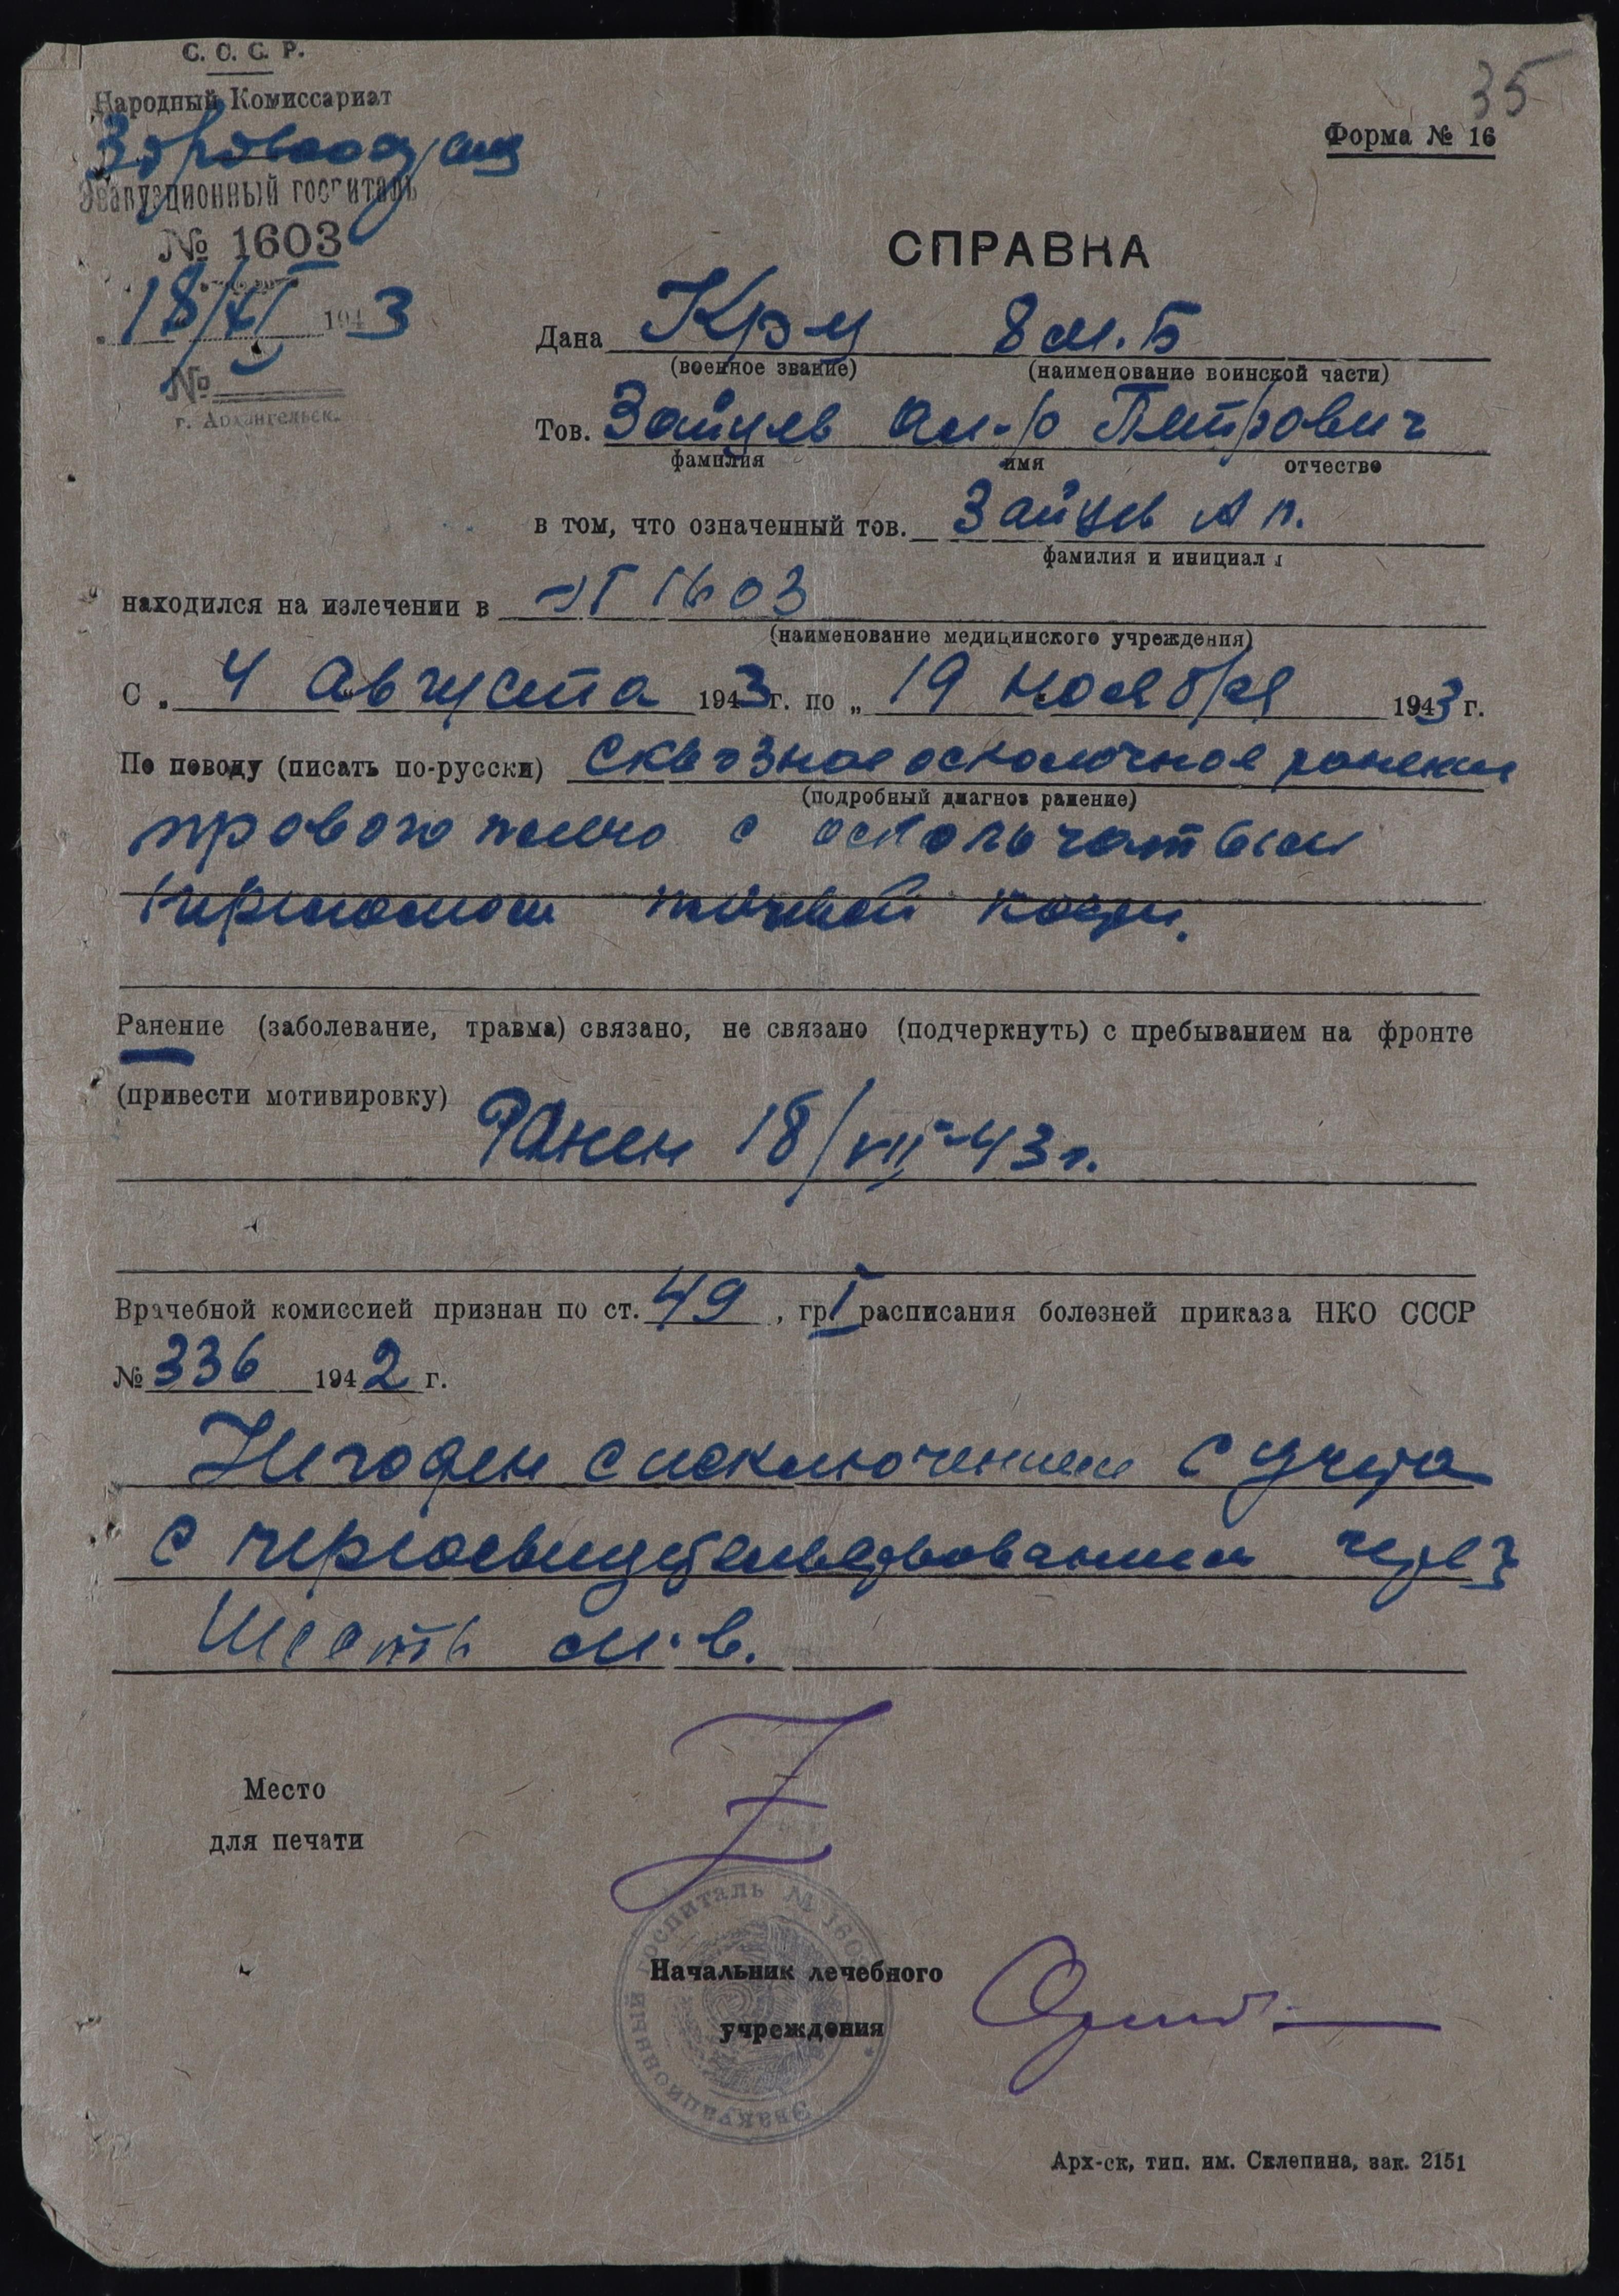 С. С. С. Р.
35
Народный Комиссариат
Форма № 16
Здравоохр
Эвакуационный госпиталь
№ 1603
18/XI 1943
№
г. Архангельск.
СПРАВКА
Дана Кр-ц 8 м.Б
(военное звание) (наименование воинской части)
Тов. Зайцев Ал-р Петрович
фамилия имя отчество
в том, что означенный тов. Зайцев А П.
фамилия и инициал
находился на излечении в ЭГ 1603
(наименование медицинского учреждения)
С „ 4 Августа 1943г. по „ 19 ноября 1943 г.
По поводу (писать по-русски) Сквозное осколочное ранение
(подробный диагноз ранение)
правого плеча с оскольчатым
переломом плечевой кости.
Ранение (заболевание, травма) связано, не связано (подчеркнуть) с пребыванием на фронте
(привести мотивировку)
Ранен 18/VII-43 г.
Врачебной комиссией признан по ст. 49, гр I расписания болезней приказа НКО СССР
№ 336 1942 г.
Негоден с исключением с учета
с переосвидетельствованием через
Шесть м-в.
Место
для печати
Эвакуационный госпиталь № 1603
Начальник лечебного
учреждения
Арх-ск, тип. им. Склепина, зак. 2151